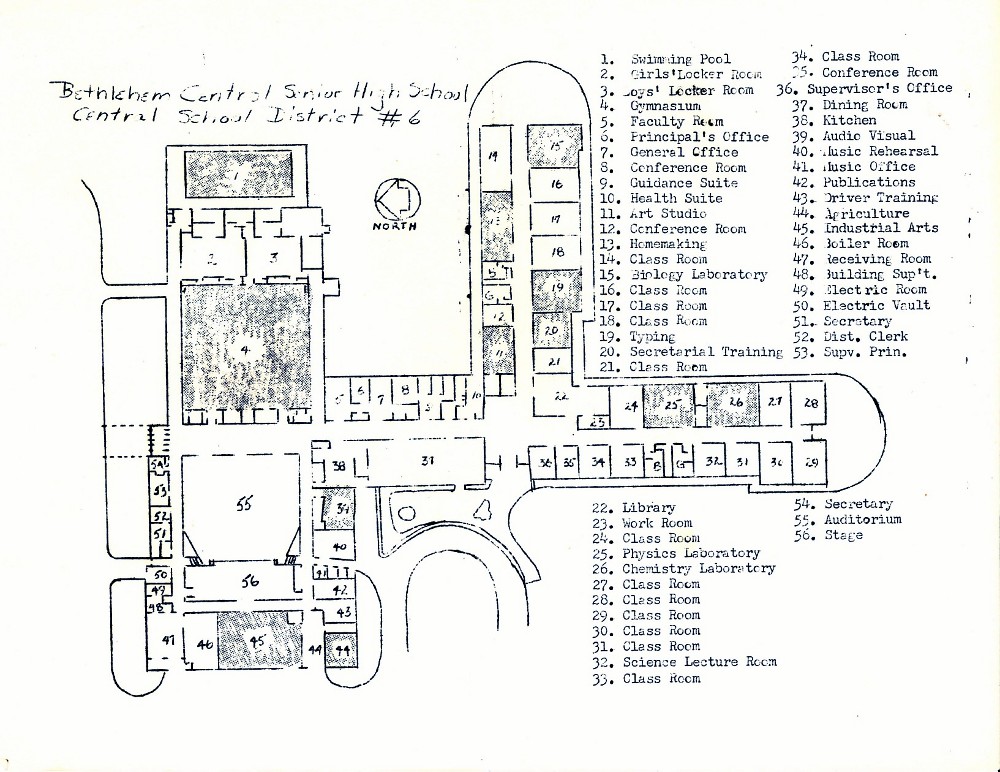 Bethlehem Central Senior High School
Central School District #6
NORTH
1. Swimming Pool
2. Girls' Locker Room
3. Boys' Locker Room
4. Gymnasium
5. Faculty Room
6. Principal's Office
7. General Office
8. Conference Room
9. Guidance Suite
10. Health Suite
11. Art Studio
12. Conference Room
13. Homemaking
14. Class Room
15. Biology Laboratory
16. Class Room
17. Class Room
18. Class Room
19. Typing
20. Secretarial Training
21. Class Room
34. Class Room
35. Conference Room
36. Supervisor's Office
37. Dining Room
38. Kitchen
39. Audio Visual
40. Music Rehearsal
41. Music Office
42. Publications
43. Driver Training
44. Agriculture
45. Industrial Arts
46. Boiler Room
47. Receiving Room
48. Building Sup't.
49. Electric Room
50. Electric Vault
51. Secretary
52. Dist. Clerk
53. Supv. Prin.
22. Library
23. Work Room
24. Class Room
25. Physics Laboratory
26. Chemistry Laboratory
27. Class Room
28. Class Room
29. Class Room
30. Class Room
31. Class Room
32. Science Lecture Room
33. Class Room
54. Secretary
55. Auditorium
56. Stage
1
2 3
4
14 15
16
17
13 18
5 19
6
12 20
11 21
5 6 7 8 10 22
23 24 25 26 27 28
38 37
36 35 34 33 B G 32 31 30 29
54
53
52
51
55
39
40
50 56 41
49 42
48 43
47 46 45 44 44